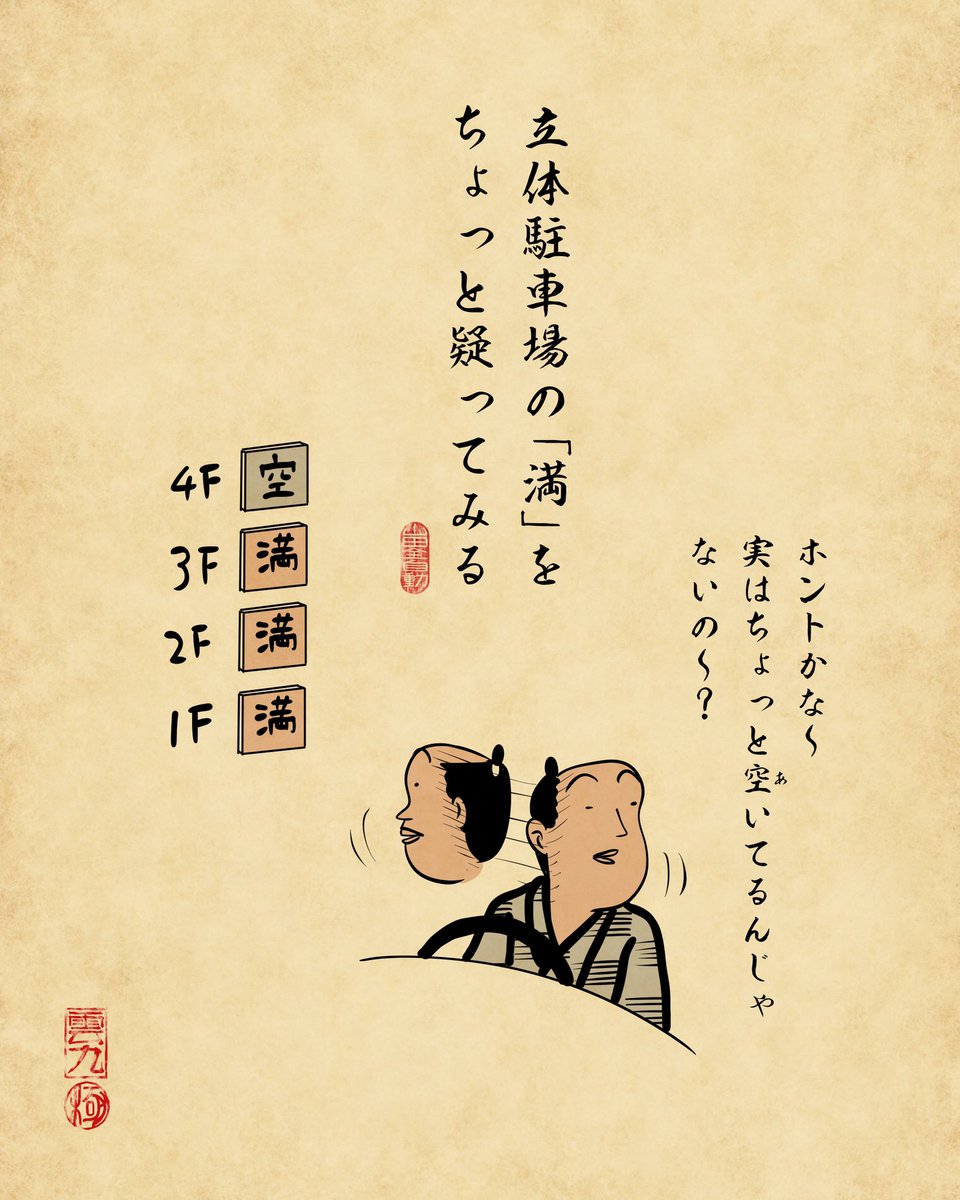 立体駐車場の「満」を
ちょっと疑ってみる
ホントかな〜
実はちょっと空いてるんじゃ
あ
ないの〜？
4F 空
3F 満
2F 満
1F 満